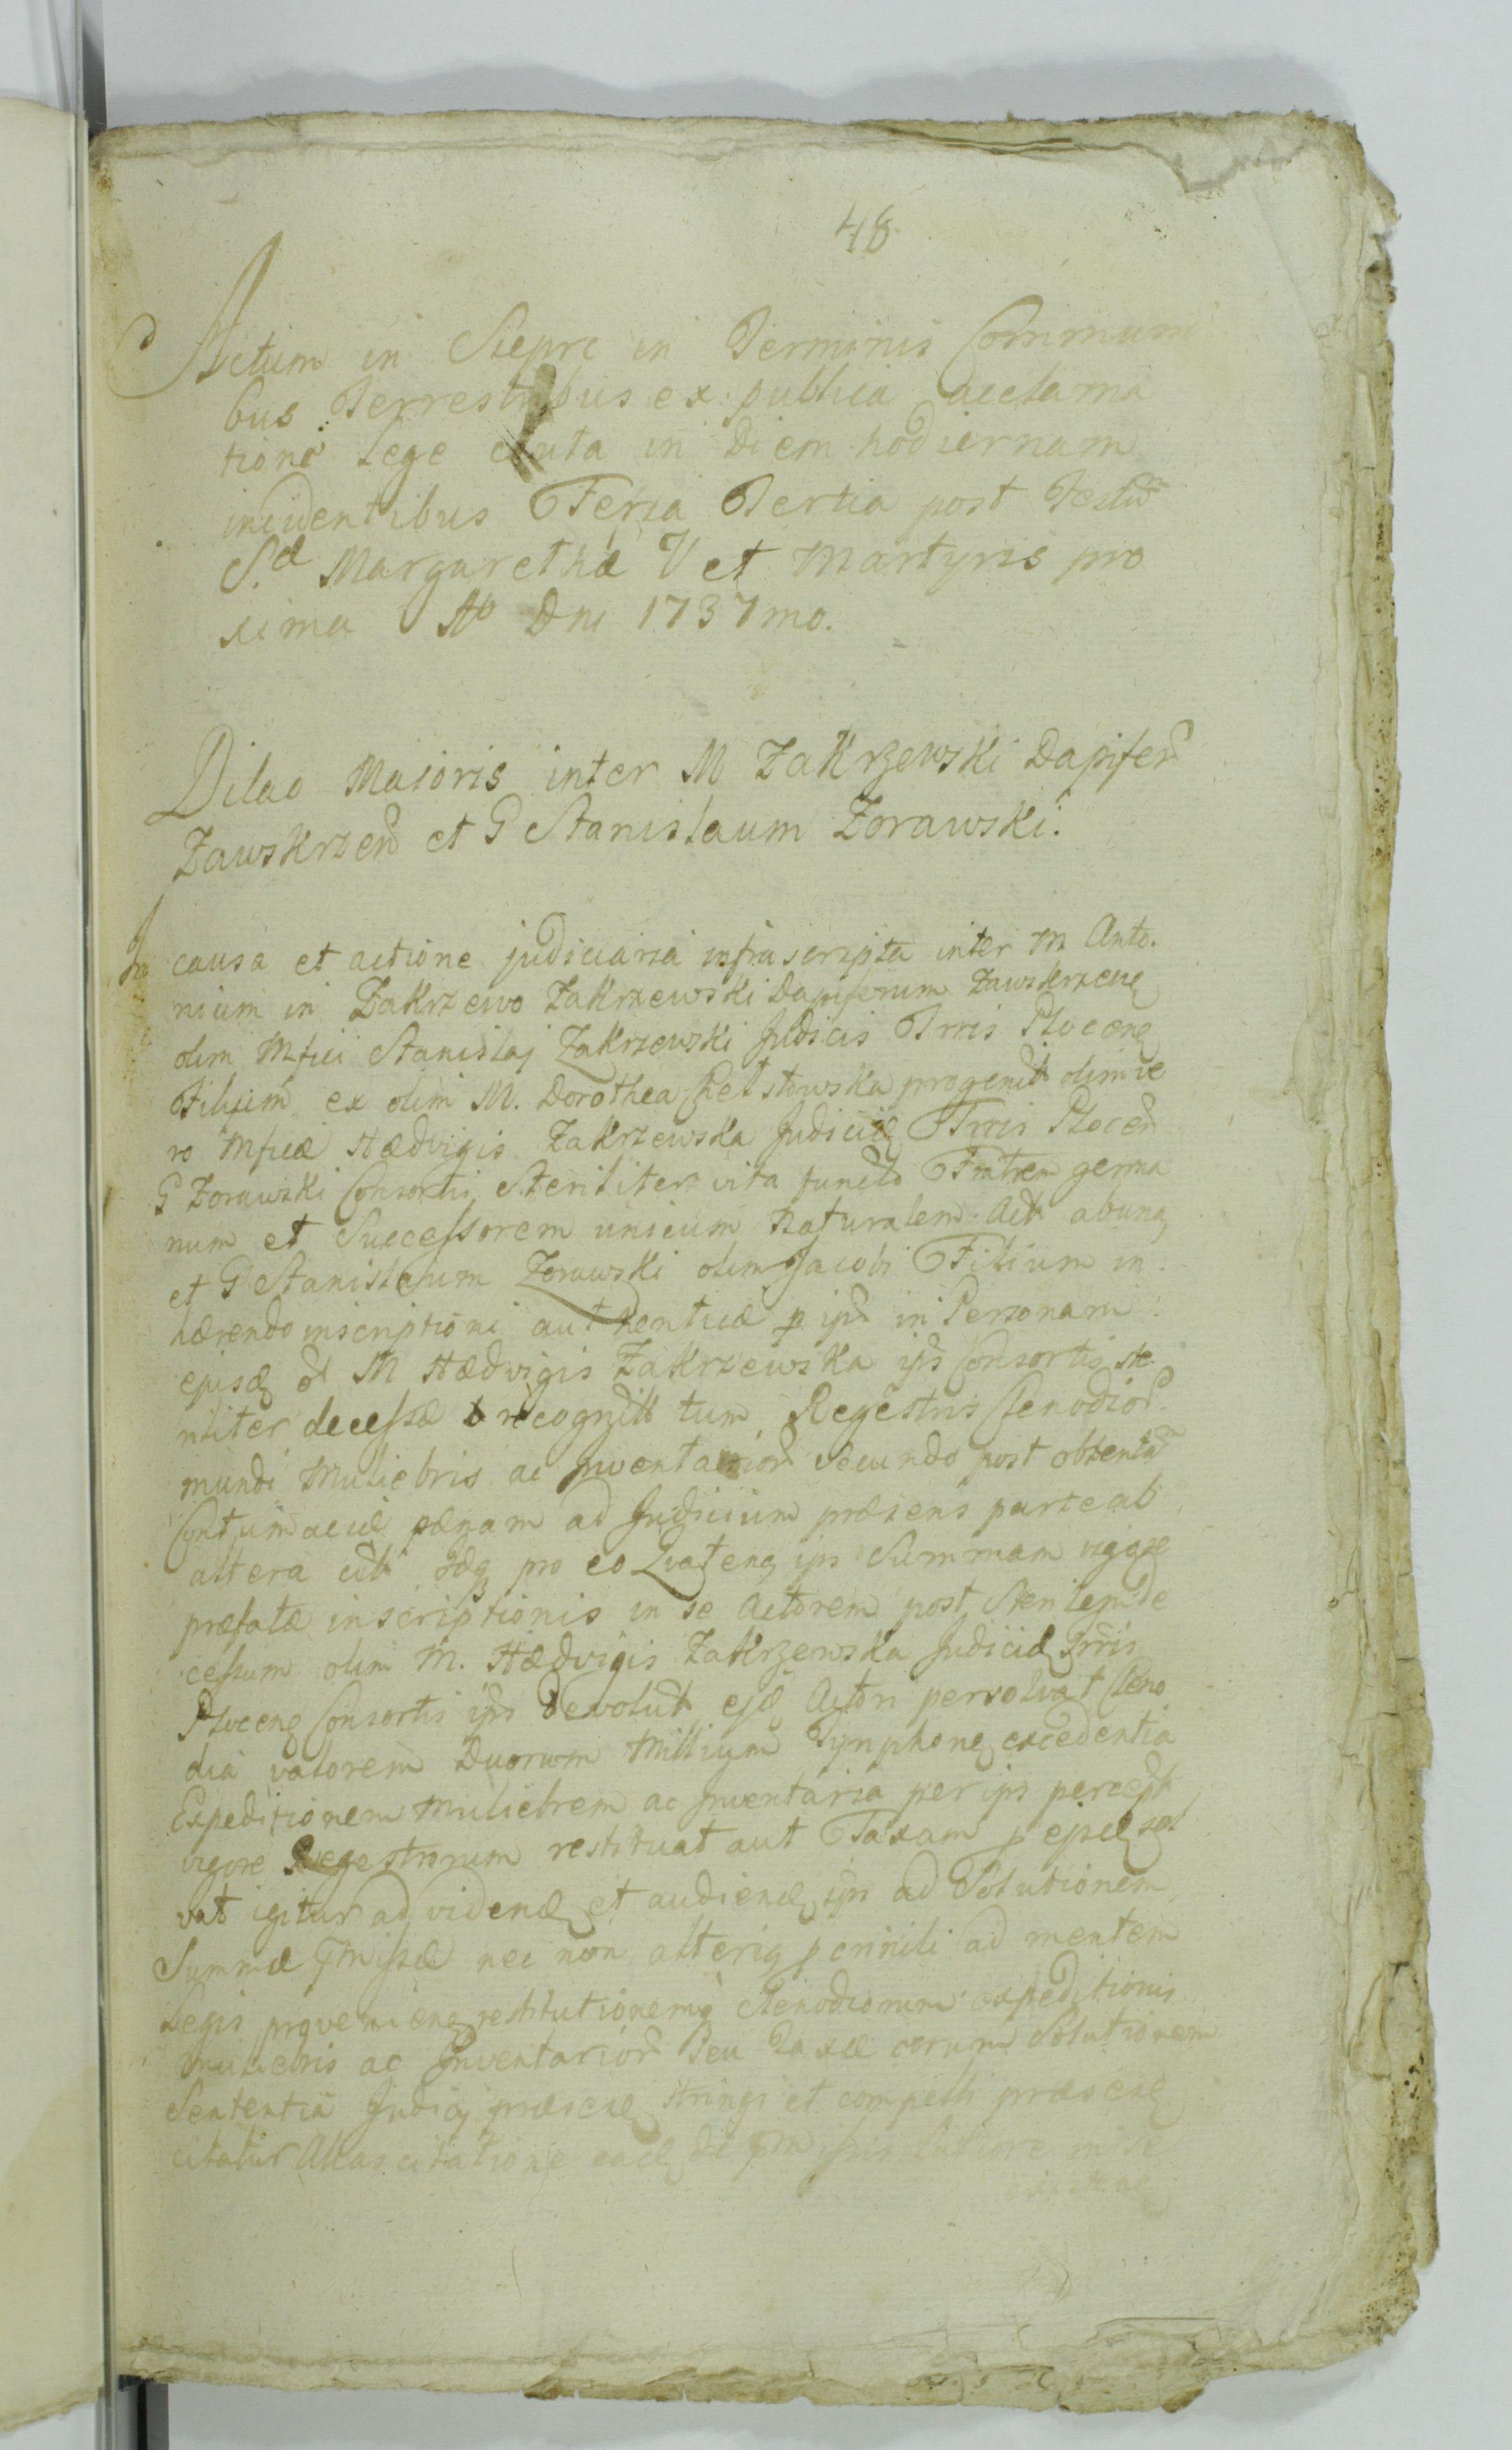 48
Actum in Siepre in Terminis Communi
bus Terrestribus ex publica acclama
tione lege cauta in diem hodiernam
incidentibus Feria Tertia post Festum
S.æ Margarethæ V et Martyris pro
xima Ao Dni 1737mo.
Dilao Maioris inter M Zakrzewski Dapifer
Zawskrzen et G Stanislaum Zorawski.
In causa et actione judiciaria infrascripta inter M Anto.
nium in Zakrzewo Zakrzewski Dapiferum Zawskrzene
olim Mfici Stanislaj Zakrzewski Judicis Trris Plocens
Filium ex olim M. Dorothea progenit olim ve
ro Mficæ Hædvigis Zakrzewska Judicis Trris Plocen
G Zorawski Consortis Steriliter vita functæ Fratrem germa
num et Successorem unicum Naturalem Act ab una
et G Stanislaum Zorawski olim Jacobi Filium in
hærendo inscriptioni authenticæ p ips in Personam
ejusd M Hædvigis Zakrzewska ips Consortis ste
riliter decessæ recognit tum Regestris Clenodior
mundi Muliebris ac Inventarior secundo post obtentam
Contumaciæ pænam ad Judicium præsens parte ab
altera cit idq pro eo Quateng ips Summam vigore
præfatæ inscriptionis in se Actorem post Sterilem de
cessum olim M. Hædvigis Zakrzewska Judicis Trris
Plocens Consortis ips devolut Actori persolvat Cleno
dia valorem Duorum Millium Tynphone excedentia
Expeditionem Muliebrem ac Inventaria per ips percept
vigore Regestrorum restituat aut Taxam p sol
vat igitur ad vidend et audiend ips ad Solutionem
Summæ pmissæ nec non alterig p simili ad mentem
Legis proveniene restitutionemq Clenodiorum expeditionis
muliebris ac Inventarior seu Taxæ eorum Solutionem
Sententia Judicij præsens stringi et compelli præsens
citatur Alias citatione de pmissis latiore